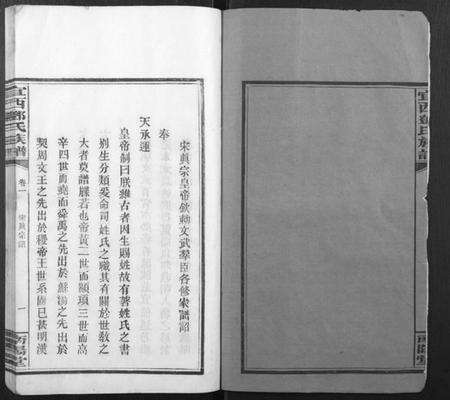 宋眞宗皇帝欽勅文武羣臣各修家譜詔
奉
天承運
皇帝制曰朕稽古者因生賜姓故有著姓氏之書
別生分類爰命司姓氏之職其有關於世敎之
大者莫譜牒若也帝黃二世而顓頊三世而高
辛四世而堯而舜禹之先出於鯀湯之先出於
契周文王之先出於稷帝王世系固已甚明漢
宜西鄧氏族譜
卷一
宋眞宗詔
一
南陽堂
宜西鄧氏族譜
南陽堂